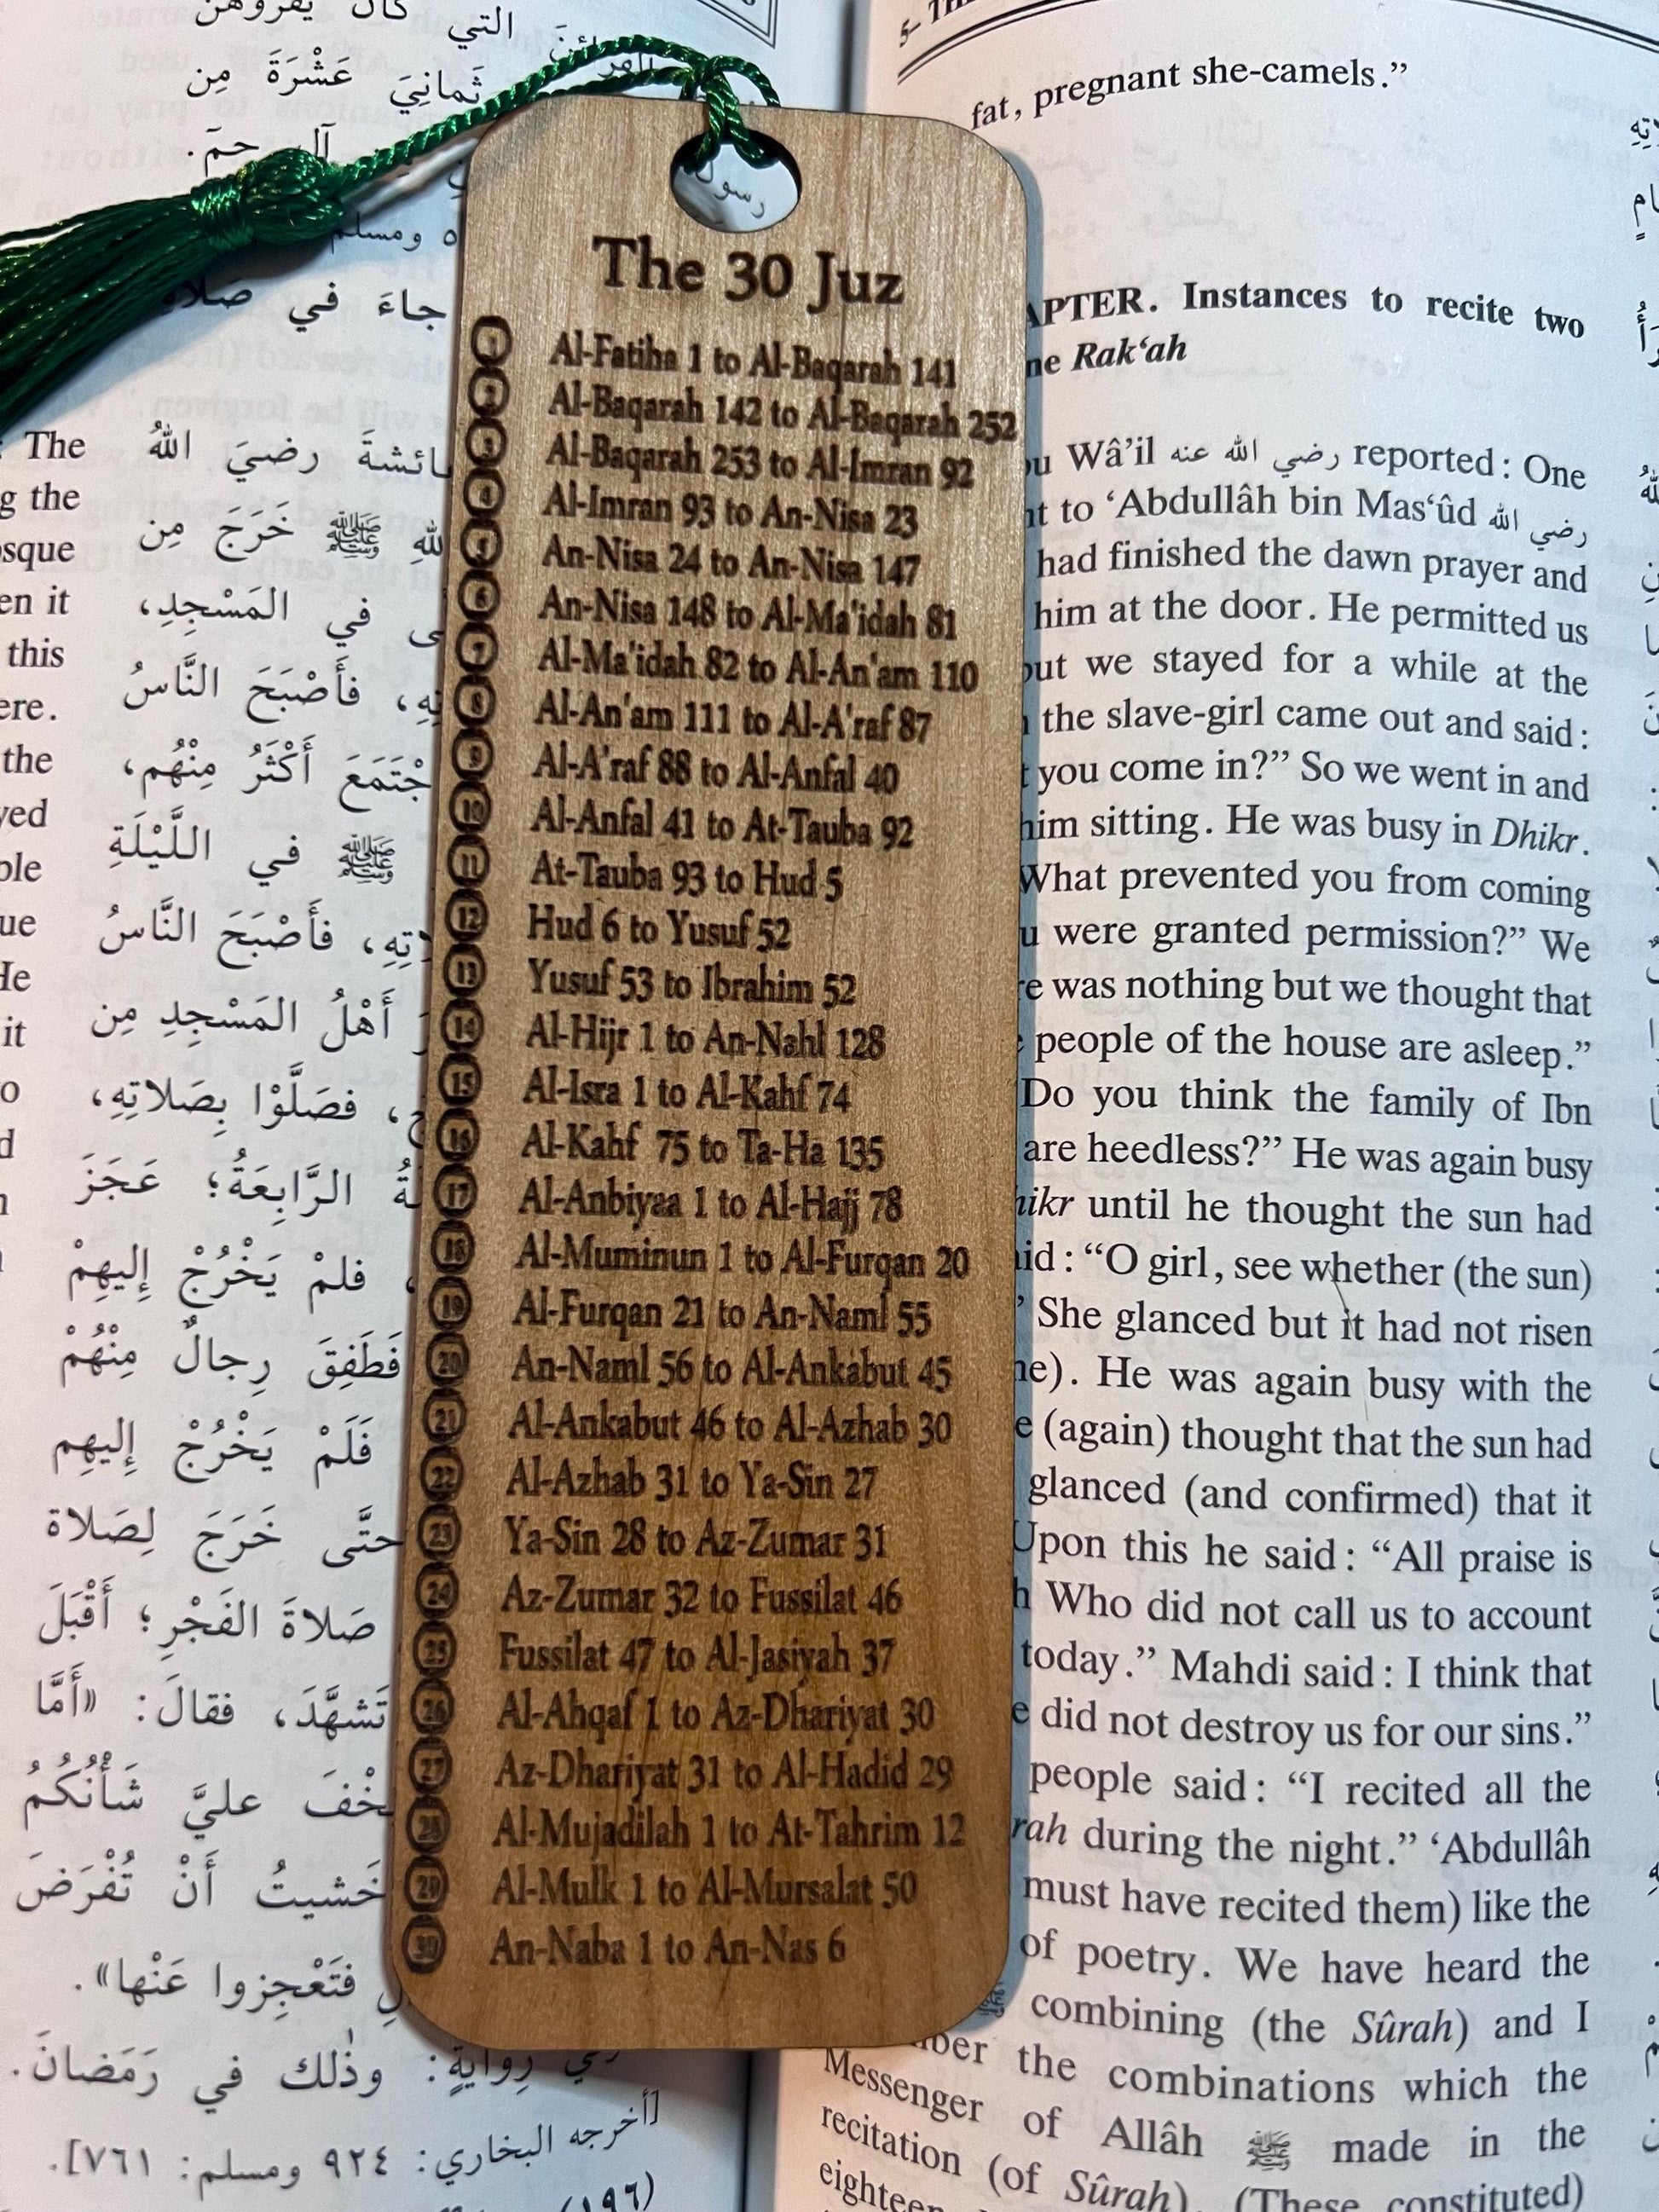 التي كان يقرؤهن
ثَمانِيَ عَشْرَةَ مِن
آلِ حمَ.
ومسلم
جاءَ في صَلاةِ
The
ـائشةَ رضيَ اللهُ
g the
ﷺ خَرَجَ مِن
osque
في المَسْجِدِ،
en it
this
فَأَصْبَحَ النَّاسُ
ere.
the
جْتَمَعَ أَكْثَرُ مِنْهُم،
yed
ﷺ في اللَّيْلَةِ
ple
ue
ـاتِهِ، فَأَصْبَحَ النَّاسُ
He
أَهْلُ المَسْجِدِ مِن
it
فصَلَّوْا بِصَلاتِهِ،
o
d
الرَّابِعَةُ؛ عَجَزَ
فلمْ يَخْرُجْ إِليهِمْ
فَطَفِقَ رِجالٌ مِنْهُمْ
فَلَمْ يَخْرُجْ إِليهِم
حتَّى خَرَجَ لِصَلاة
صَلاةَ الفَجْرِ؛ أَقْبَلَ
تَشهَّدَ، فقالَ: «أَمَّا
ـخْفَ عليَّ شَأْنُكُمُ
خَشيتُ أَنْ تُفْرَضَ
فتَعْجِزوا عَنْها».
رِوايةٍ: وذٰلك في رَمَضانَ.
[أخرجه البخاري: ٩٢٤ ومسلم: ٧٦١].
(١٩٦)
رسول
The 30 Juz
1 Al-Fatiha 1 to Al-Baqarah 141
2 Al-Baqarah 142 to Al-Baqarah 252
3 Al-Baqarah 253 to Al-Imran 92
4 Al-Imran 93 to An-Nisa 23
4 An-Nisa 24 to An-Nisa 147
6 An-Nisa 148 to Al-Ma'idah 81
7 Al-Ma'idah 82 to Al-An'am 110
8 Al-An'am 111 to Al-A'raf 87
9 Al-A'raf 88 to Al-Anfal 40
10 Al-Anfal 41 to At-Tauba 92
11 At-Tauba 93 to Hud 5
12 Hud 6 to Yusuf 52
13 Yusuf 53 to Ibrahim 52
14 Al-Hijr 1 to An-Nahl 128
15 Al-Isra 1 to Al-Kahf 74
16 Al-Kahf 75 to Ta-Ha 135
17 Al-Anbiyaa 1 to Al-Hajj 78
18 Al-Muminun 1 to Al-Furqan 20
19 Al-Furqan 21 to An-Naml 55
20 An-Naml 56 to Al-Ankabut 45
21 Al-Ankabut 46 to Al-Azhab 30
22 Al-Azhab 31 to Ya-Sin 27
23 Ya-Sin 28 to Az-Zumar 31
24 Az-Zumar 32 to Fussilat 46
25 Fussilat 47 to Al-Jasiyah 37
26 Al-Ahqaf 1 to Az-Dhariyat 30
27 Az-Dhariyat 31 to Al-Hadid 29
28 Al-Mujadilah 1 to At-Tahrim 12
29 Al-Mulk 1 to Al-Mursalat 50
30 An-Naba 1 to An-Nas 6
fat, pregnant she-camels.”
APTER. Instances to recite two
ne Rak‘ah
u Wâ’il رضي الله عنه reported: One
nt to ‘Abdullâh bin Mas‘ûd رضي الله
had finished the dawn prayer and
him at the door. He permitted us
but we stayed for a while at the
the slave-girl came out and said:
t you come in?” So we went in and
him sitting. He was busy in Dhikr.
What prevented you from coming
u were granted permission?” We
re was nothing but we thought that
people of the house are asleep.”
Do you think the family of Ibn
are heedless?” He was again busy
hikr until he thought the sun had
aid: “O girl, see whether (the sun)
’ She glanced but it had not risen
ne). He was again busy with the
e (again) thought that the sun had
glanced (and confirmed) that it
Upon this he said: “All praise is
h Who did not call us to account
today.” Mahdi said: I think that
e did not destroy us for our sins.”
people said: “I recited all the
rah during the night.” ‘Abdullâh
must have recited them) like the
of poetry. We have heard the
combining (the Sûrah) and I
ber the combinations which the
Messenger of Allâh ﷺ made in the
recitation (of Sûrah). (These constituted)
eighteen